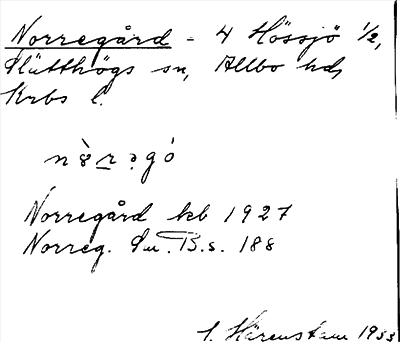 Norregård - 4 Hössjö 1/2,
Slätthögs sn, Allbo hd,
Krbs l.
Norregård kb 1927
Norreg. Su. B.s. 188
S. Härenstam 1933